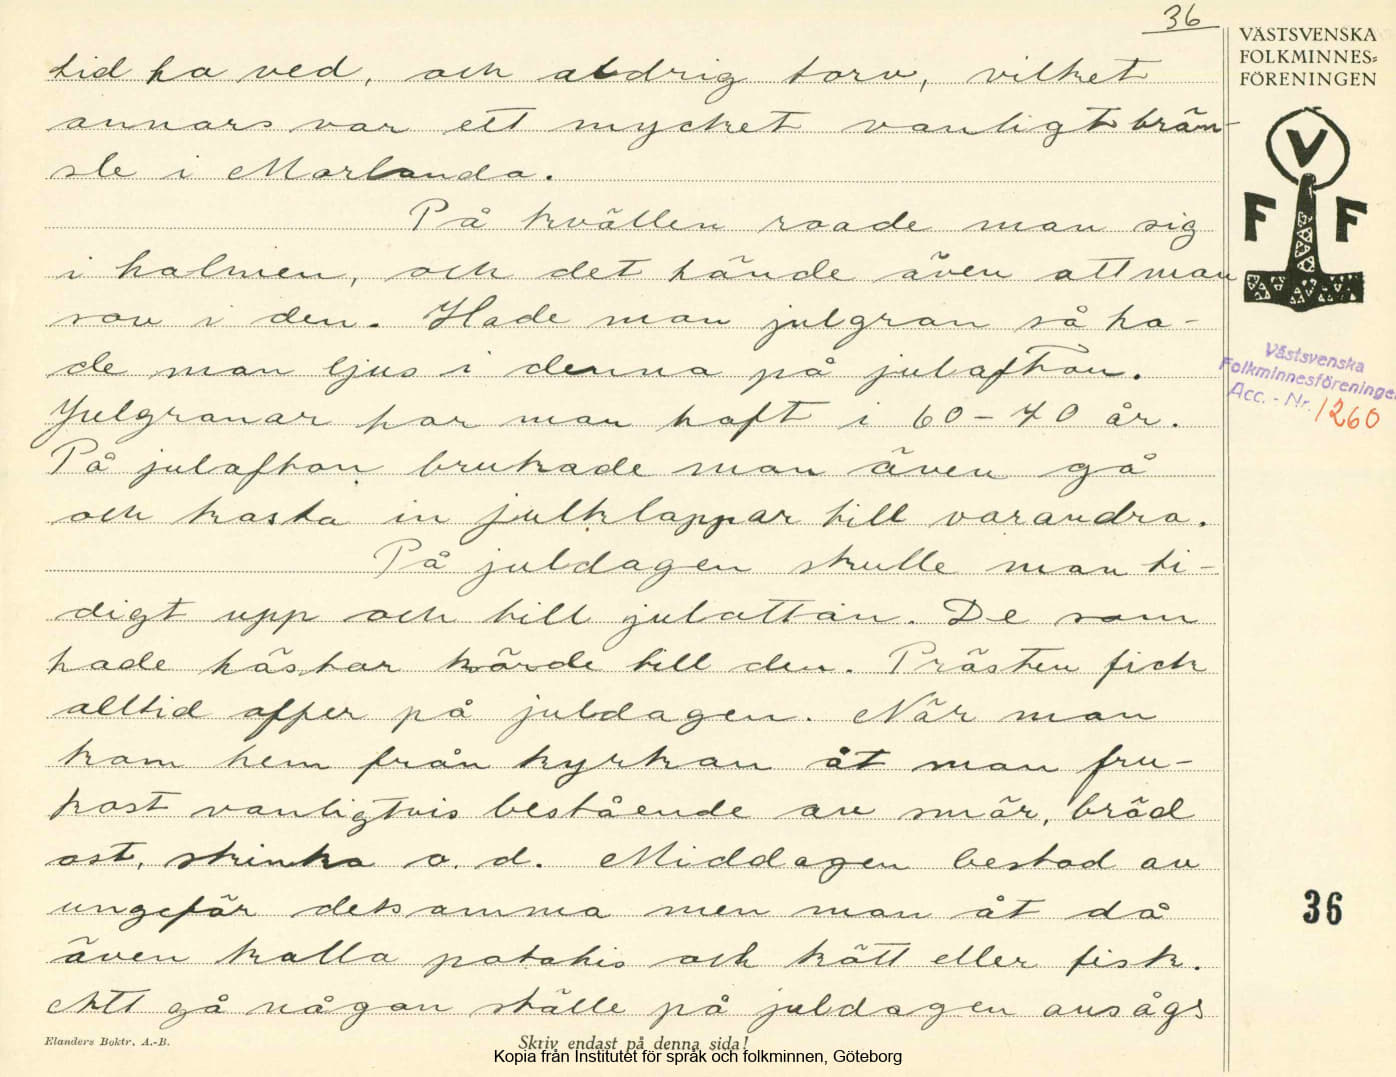 36
tid ha ved, och aldrig torv, vilket
annars var ett mycket vanligt brän-
sle i Morlanda.
På kvällen roade man sig
i halmen, och det hände även att man
sov i den. Hade man julgran så ha-
de man ljus i denna på julafton.
Julgranar har man haft i 60-70 år.
På julafton brukade man även gå
och kasta in julklappar till varandra.
På juldagen skulle man ti-
digt upp och till julottan. De som
hade hästar körde till den. Prästen fick
alltid offer på juldagen. När man
kom hem från kyrkan åt man fru-
kost vanligtvis bestående av smör, bröd
ost, skinka o. d. Middagen bestod av
ungefär detsamma men man åt då
även kalla potatis och kött eller fisk.
Att gå någon ställe på juldagen ansågs
Elanders Boktr. A.-B.
Skriv endast på denna sida!
Kopia från Institutet för språk och folkminnen, Göteborg
VÄSTSVENSKA
FOLKMINNES=
FÖRENINGEN
V
F F
Västsvenska
Folkminnesföreningen
Acc. - Nr. 1260
36